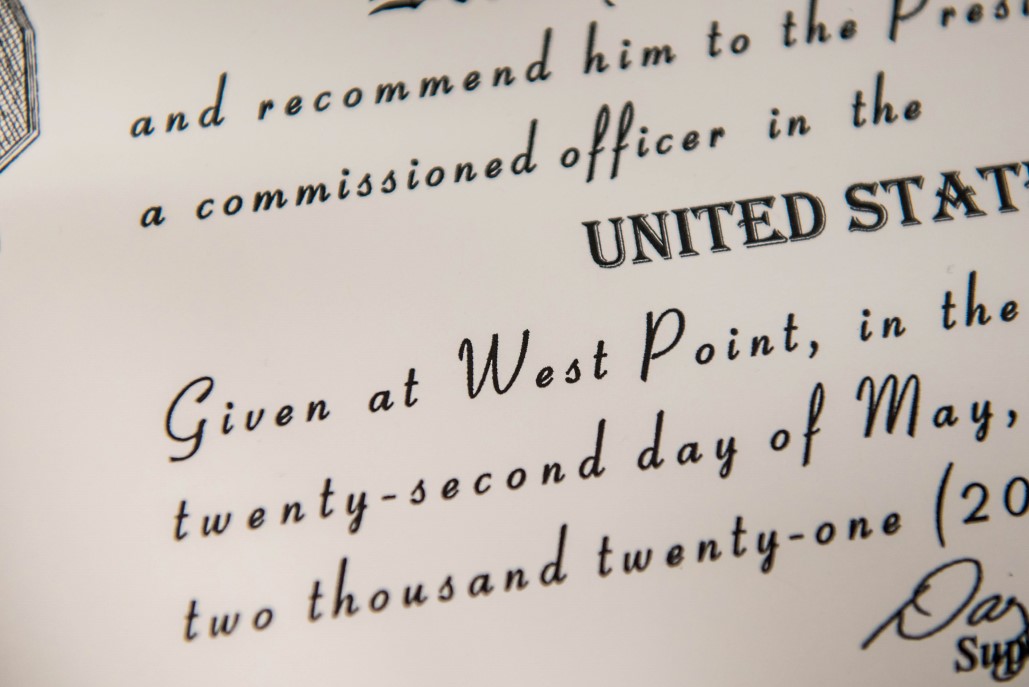 and recommend him to the Pres
a commissioned officer in the
UNITED STAT
Given at West Point, in the
twenty-second day of May,
two thousand twenty-one (20
Sup